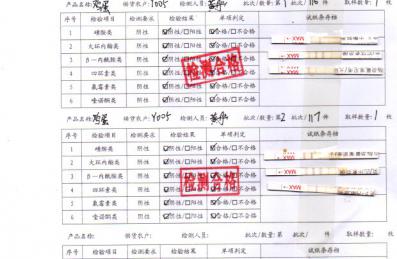 产品名称: 鸡蛋 供货农户: Y005 检测人员: 批次/数量: 第1 / 116 件 取样数量: 1 枚
序号 检验项目 检测要求 检验结果 单项判定 试纸条存档
1 磺胺类 阴性 ☑阴性/□阳性 ☑合格/□不合格
2 大环内酯类 阴性 ☑阴性/□阳性 ☑合格/□不合格
3 β-内酰胺类 阴性 ☑阴性/□阳性 ☑合格/□不合格
4 四环素类 阴性 ☑阴性/□阳性 ☑合格/□不合格
5 氟霉素类 阴性 ☑阴性/□阳性 ☑合格/□不合格
6 喹诺酮类 阴性 ☑阴性/□阳性 ☑合格/□不合格
检测合格
MAX
MAX
MAX
产品名称: 鸡蛋 供货农户: Y005 检测人员: 批次/数量: 第2 / 117 件 取样数量: 1 枚
序号 检验项目 检测要求 检验结果 单项判定 试纸条存档
1 磺胺类 阴性 ☑阴性/□阳性 ☑合格/□不合格
2 大环内酯类 阴性 ☑阴性/□阳性 ☑合格/□不合格
3 β-内酰胺类 阴性 ☑阴性/□阳性 ☑合格/□不合格
4 四环素类 阴性 ☑阴性/□阳性 ☑合格/□不合格
5 氟霉素类 阴性 ☑阴性/□阳性 ☑合格/□不合格
6 喹诺酮类 阴性 ☑阴性/□阳性 ☑合格/□不合格
检测合格
MAX
MAX
MAX
产品名称: 供货农户: 检测人员: 批次/数量: 第 / 件 取样数量: 枚
序号 检验项目 检测要求 检验结果 单项判定 试纸条存档